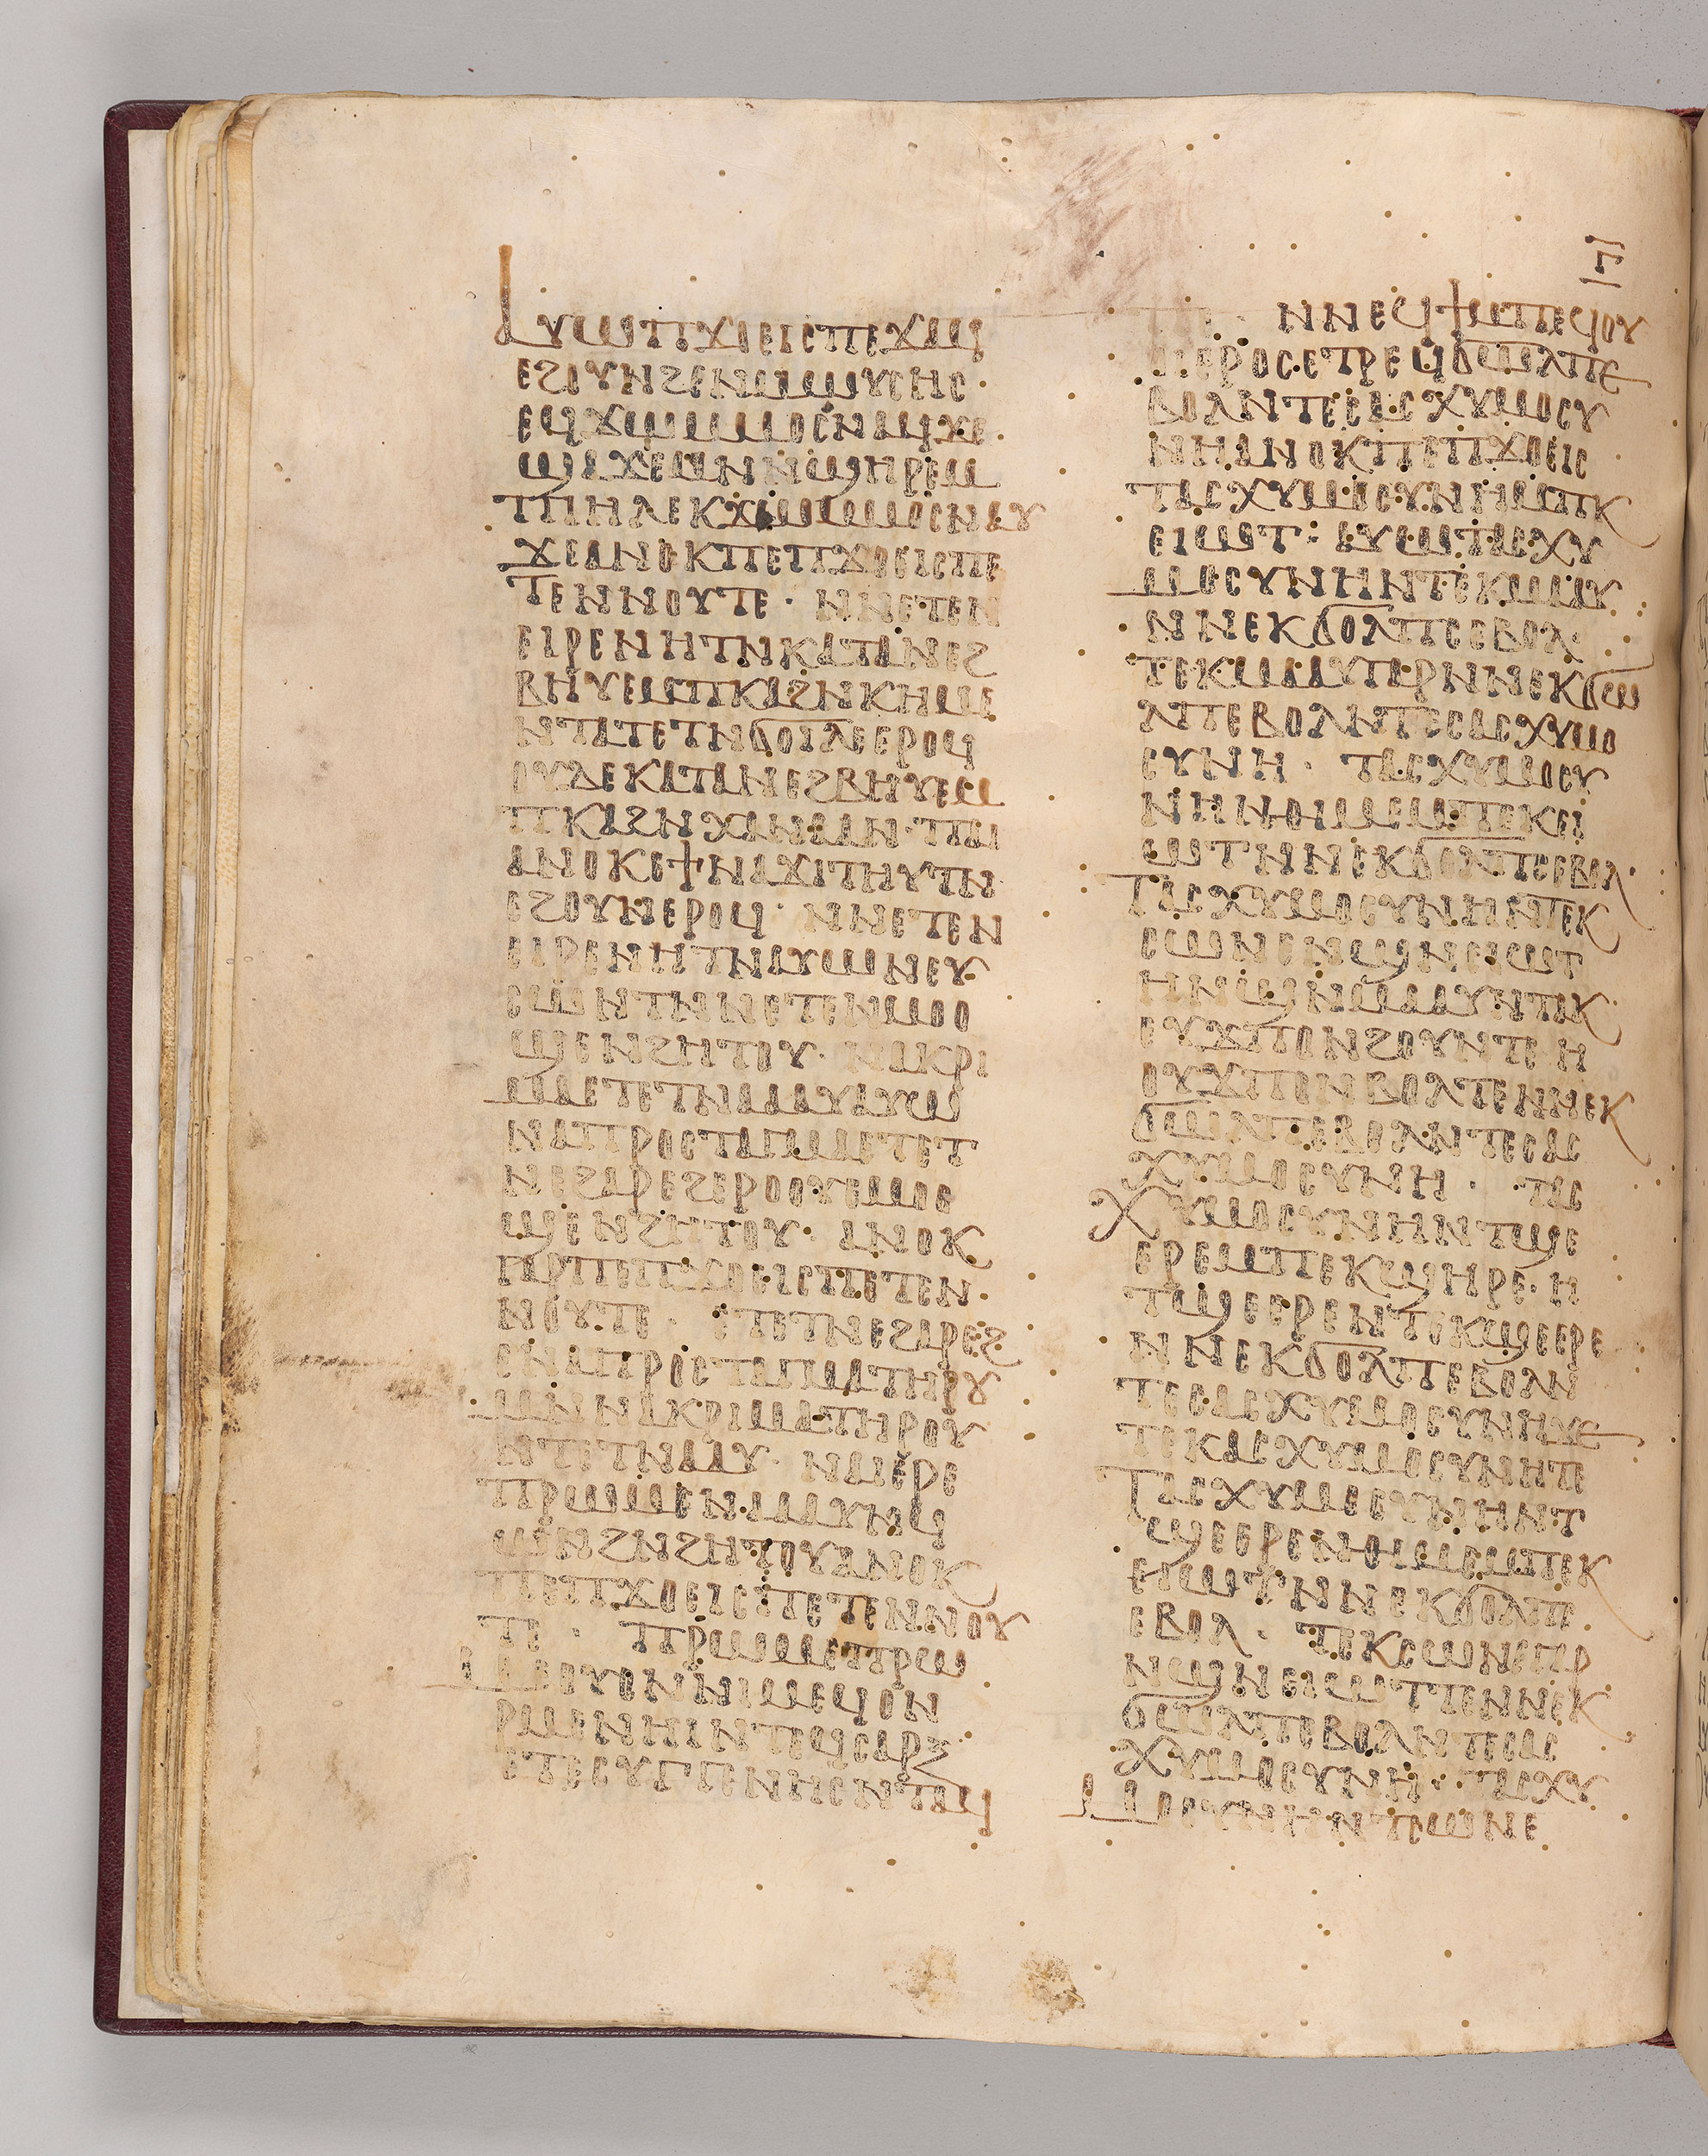 ⲁⲩⲱⲡϫⲟⲉⲓⲥⲡⲉϫⲁϥ
ⲉϩⲟⲩⲛϩⲉⲛⲙⲱⲩⲥⲏⲥ·
ⲉϥϫⲱⲙⲙⲟⲥⲛⲁϥϫⲉ·
ϣⲁϫⲉⲙⲛⲛϣⲏⲣⲉⲙ
ⲡⲓⲏⲗⲉⲕϫⲱⲙⲙⲟⲥⲛⲁⲩ
ϫⲉⲁⲛⲟⲕⲡⲉⲡϫⲟⲉⲓⲥⲡⲉ
ⲧⲉⲛⲛⲟⲩⲧⲉ· ⲛⲛⲉⲧⲉⲛ
ⲉⲓⲣⲉⲛⲏⲧⲛⲕⲁⲧⲁⲛⲉϩ
ⲃⲏⲩⲉⲙⲡⲕⲁϩⲛⲕⲏⲙⲉ
ⲛⲧⲁⲧⲉⲧⲛϭⲟⲓⲗⲉⲉⲣⲟϥ
ⲟⲩⲇⲉⲕⲁⲧⲁⲛⲉϩⲃⲏⲩⲉⲙ
ⲡⲕⲁϩⲛⲭⲁⲛⲁⲁⲛ·ⲡⲁⲓ
ⲁⲛⲟⲕⲉϯⲛⲁϫⲓⲧⲏⲩⲧⲛ
ⲉϩⲟⲩⲛⲉⲣⲟϥ· ⲛⲛⲉⲧⲉⲛ
ⲉⲓⲣⲉⲛⲏⲧⲛⲁⲩⲱⲛⲉⲩ
ⲥⲱⲛⲧⲛⲛⲉⲧⲉⲛⲙⲟⲟ
ϣⲉⲛϩⲏⲧⲟⲩ· ⲛⲁⲕⲣⲓ
ⲙⲁⲉⲧⲉⲧⲛⲁⲁⲁⲩⲁⲩⲱ
ⲛⲁⲡⲣⲟⲥⲧⲁⲅⲙⲁⲉⲧⲉⲧ
ⲛⲉϩⲁⲣⲉϩⲉⲣⲟⲟⲩⲉⲙⲟⲟ
ϣⲉⲛϩⲏⲧⲟⲩ· ⲁⲛⲟⲕ
ⲅⲁⲣⲡⲉⲡϫⲟⲉⲓⲥⲡⲉⲧⲉⲛ
ⲛⲟⲩⲧⲉ· ⲉⲧⲉⲧⲛⲉϩⲁⲣⲉϩ
ⲉⲛⲁⲡⲣⲟⲥⲧⲁⲅⲙⲁⲧⲏⲣⲟⲩ
ⲙⲛⲛⲁⲕⲣⲓⲙⲁⲧⲏⲣⲟⲩ
ⲛⲧⲉⲧⲛⲁⲁⲩ· ⲛⲁⲓⲉⲣⲉ
ⲡⲣⲱⲙⲉⲛⲁⲁⲁⲩⲛϥ
ⲱⲛϩⲛϩⲏⲧⲟⲩⲁⲛⲟⲕ
ⲡⲉⲡϫⲟⲉⲓⲥⲡⲉⲧⲉⲛⲛⲟⲩ
ⲧⲉ· ⲡⲣⲱⲙⲉⲡⲣⲱ
ⲙⲉⲟⲩⲟⲛⲛⲓⲙⲉϥⲟⲛ
ⲣⲙⲉⲛⲏⲓⲛⲧⲉϥⲥⲁⲣⲝ
ⲉⲧⲉⲥⲩⲅⲅⲉⲛⲏⲥⲛⲧⲁϥ
ⲅ
ⲧⲉ· ⲛⲛⲉϥϯⲙⲡⲉϥⲟⲩ
ⲟⲓⲉⲣⲟⲥⲉⲧⲣⲉϥϭⲱⲗⲡⲉ
ⲃⲟⲗⲛⲧⲉⲥⲁⲥⲭⲩⲙⲟⲥⲩ
ⲛⲏⲁⲛⲟⲕⲡⲉⲡϫⲟⲉⲓⲥ
ⲧⲁⲥⲭⲩⲙⲟⲥⲩⲛⲏⲙⲡⲕ
ⲉⲓⲱⲧ: ⲁⲩⲱⲧⲁⲥⲭⲩ
ⲙⲟⲥⲩⲛⲏⲛⲧⲉⲕⲙⲁⲁⲩ
ⲛⲛⲉⲕϭⲟⲗⲡⲥⲉⲃⲟⲗ·
ⲧⲉⲕⲙⲁⲁⲩⲧⲉⲣⲛⲛⲉⲕϭⲱ
ⲗⲡⲉⲃⲟⲗⲛⲧⲉⲥⲁⲥⲭⲩⲙⲟ
ⲥⲩⲛⲏ· ⲧⲁⲥⲭⲩⲙⲟⲥⲩ
ⲛⲏⲛⲑⲓⲙⲉⲙⲡⲉⲕⲉⲓ
ⲱⲧⲛⲛⲉⲕϭⲟⲗⲡⲥⲉⲃⲟⲗ·
ⲧⲁⲥⲭⲩⲙⲟⲥⲩⲛⲏⲛⲧⲉⲕ
ⲥⲱⲛⲉⲛϣⲛⲉⲓⲱⲧ
ⲏⲛϣⲛⲙⲁⲁⲩⲛⲧⲁⲕ
ⲉⲩϫⲡⲟⲛϩⲟⲩⲛⲧⲉⲏ
ⲟⲩϫⲡⲟⲛⲃⲟⲗⲧⲉⲛⲛⲉⲕ
ϭⲱⲗⲡⲉⲃⲟⲗⲛⲧⲉⲥⲁⲥ
ⲭⲩⲙⲟⲥⲩⲛⲏ· ⲧⲁⲥ
ⲭⲩⲙⲟⲥⲩⲛⲏⲛⲧϣⲉ
ⲉⲣⲉⲙⲡⲉⲕϣⲏⲣⲉ·ⲏ
ⲧϣⲉⲉⲣⲉⲛⲧⲉⲕϣⲉⲉⲣⲉ
ⲛⲛⲉⲕϭⲟⲗⲡⲉⲃⲟⲗⲛ
ⲧⲉⲥⲁⲥⲭⲩⲙⲟⲥⲩⲛⲏϫⲉ
ⲧⲉⲕⲁⲥⲭⲩⲙⲟⲥⲩⲛⲏⲧⲉ
ⲧⲁⲥⲭⲩⲙⲟⲥⲩⲛⲏⲛⲧ
ϣⲉⲉⲣⲉⲛⲑⲓⲙⲉⲙⲡⲉⲕ
ⲉⲓⲱⲧⲛⲛⲉⲕϭⲟⲗⲡⲥ
ⲉⲃⲟⲗ· ⲧⲉⲕⲥⲱⲛⲉⲅⲁⲣ
ⲛϣⲛⲉⲓⲱⲧⲧⲉⲛⲛⲉⲕ
ϭⲱⲗⲡⲉⲃⲟⲗⲛⲧⲉⲥⲁⲥ
ⲭⲩⲙⲟⲥⲩⲛⲏ· ⲧⲁⲥⲭⲩ
ⲙⲟⲥⲩⲛⲏⲛⲧⲥⲱⲛⲉ